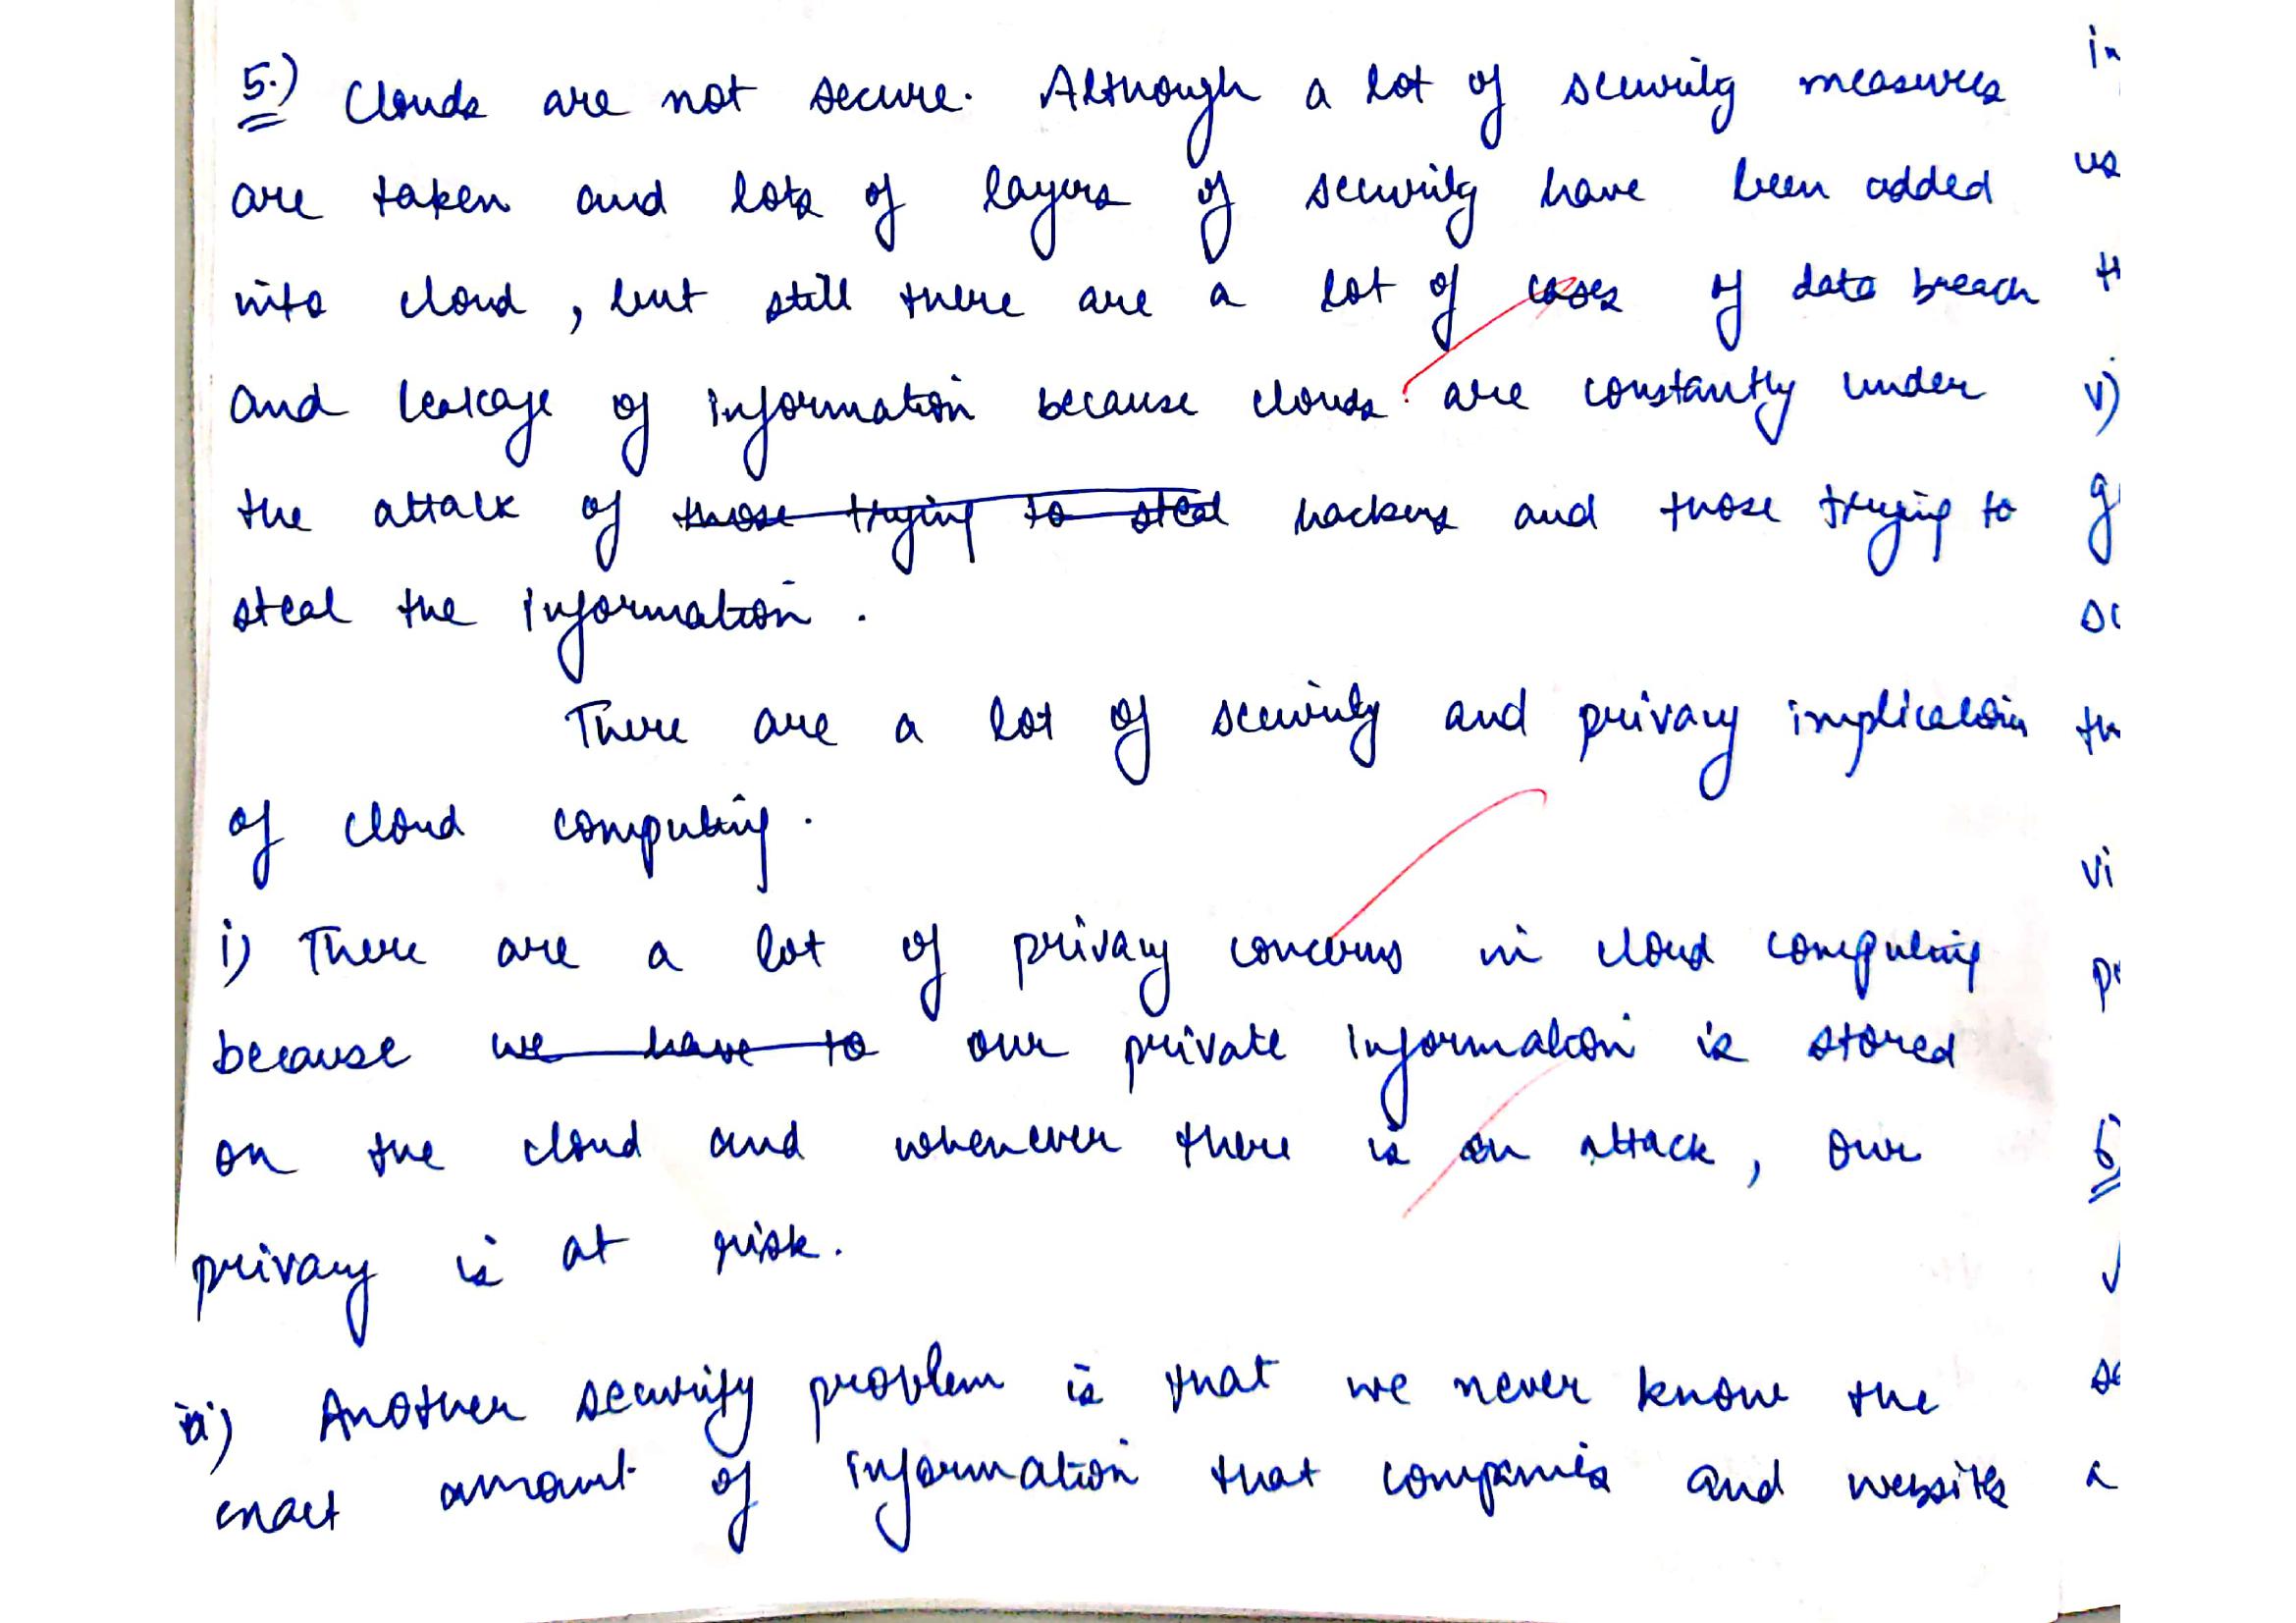 5.) Clouds are not secure. Although a lot of security measures
are taken and lots of layers of security have been added
into cloud, but still there are a lot of cases of data breach
and leakage of information because clouds are constantly under
the attack of those trying to steal hackers and those trying to
steal the information.
There are a lot of security and privacy implication
of cloud computing.
i) There are a lot of privacy concerns in cloud computing
because we have to our private information is stored
on the cloud and whenever there is an attack, our
privacy is at risk.
ii) Another security problem is that we never know the
exact amount of information that companies and websites